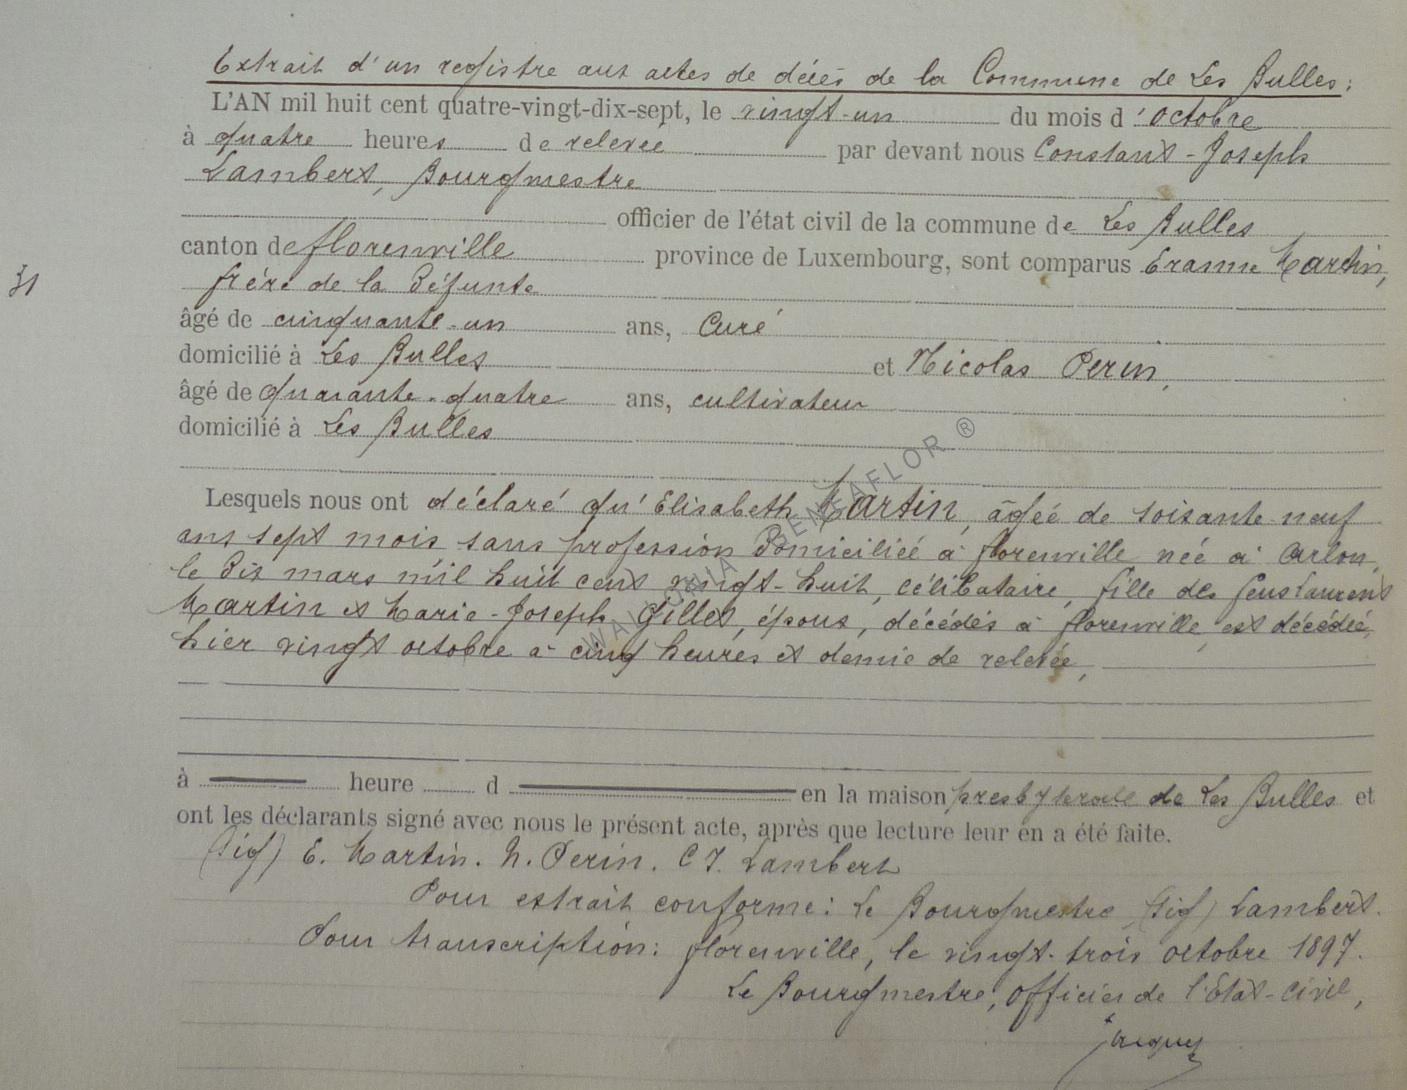 Extrait d'un registre aux actes de décès de la Commune de Les Bulles :
L'AN mil huit cent quatre-vingt-dix-sept, le vingt-un du mois d'octobre
à quatre heures de relevée par devant nous Constant-Joseph
Lambert, Bourgmestre
officier de l'état civil de la commune de Les Bulles
canton de florenville province de Luxembourg, sont comparus Erasme Martin,
frère de la défunte
31
âgé de cinquante-un ans, Curé
domicilié à Les Bulles et Nicolas Perin,
âgé de quarante-quatre ans, cultivateur
domicilié à Les Bulles
Lesquels nous ont déclaré qu'Elisabeth Martin, âgée de soisante neuf
ans sept mois sans profession domiciliée à florenville née à Arlon,
le dix mars mil huit cent vingt-huit, célibataire, fille des feus Laurent
Martin et Marie-Joseph Gillet, époux, décédés à florenville, est décédée,
hier vingt octobre à cinq heures et demie de relevée,
à heure d en la maison presbytérale de Les Bulles et
ont les déclarants signé avec nous le présent acte, après que lecture leur en a été faite.
(Sig) E. Martin. N. Perin. C J. Lambert
Pour extrait conforme : Le Bourgmestre (Sig) Lambert.
Pour transcription : florenville, le vingt-trois octobre 1897.
Le Bourgmestre, officier de l'Etat-Civil,
Jacques
WALLONIA GENEAFLOR ®